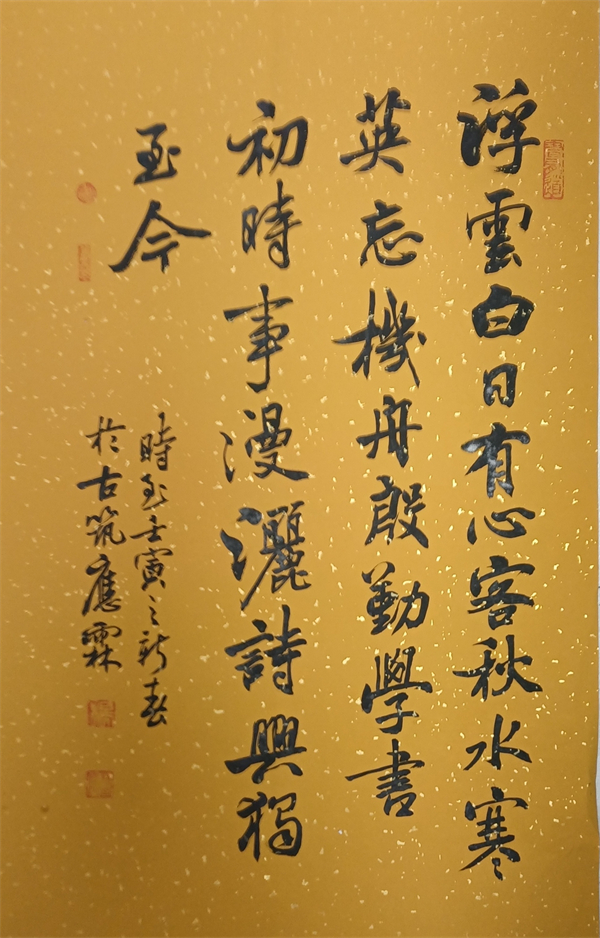 浮雲白日有心客秋水寒
英忘機舟殷勤學書
初時事漫灑詩興獨
至今
時至壬寅之新春
於古筑應霖